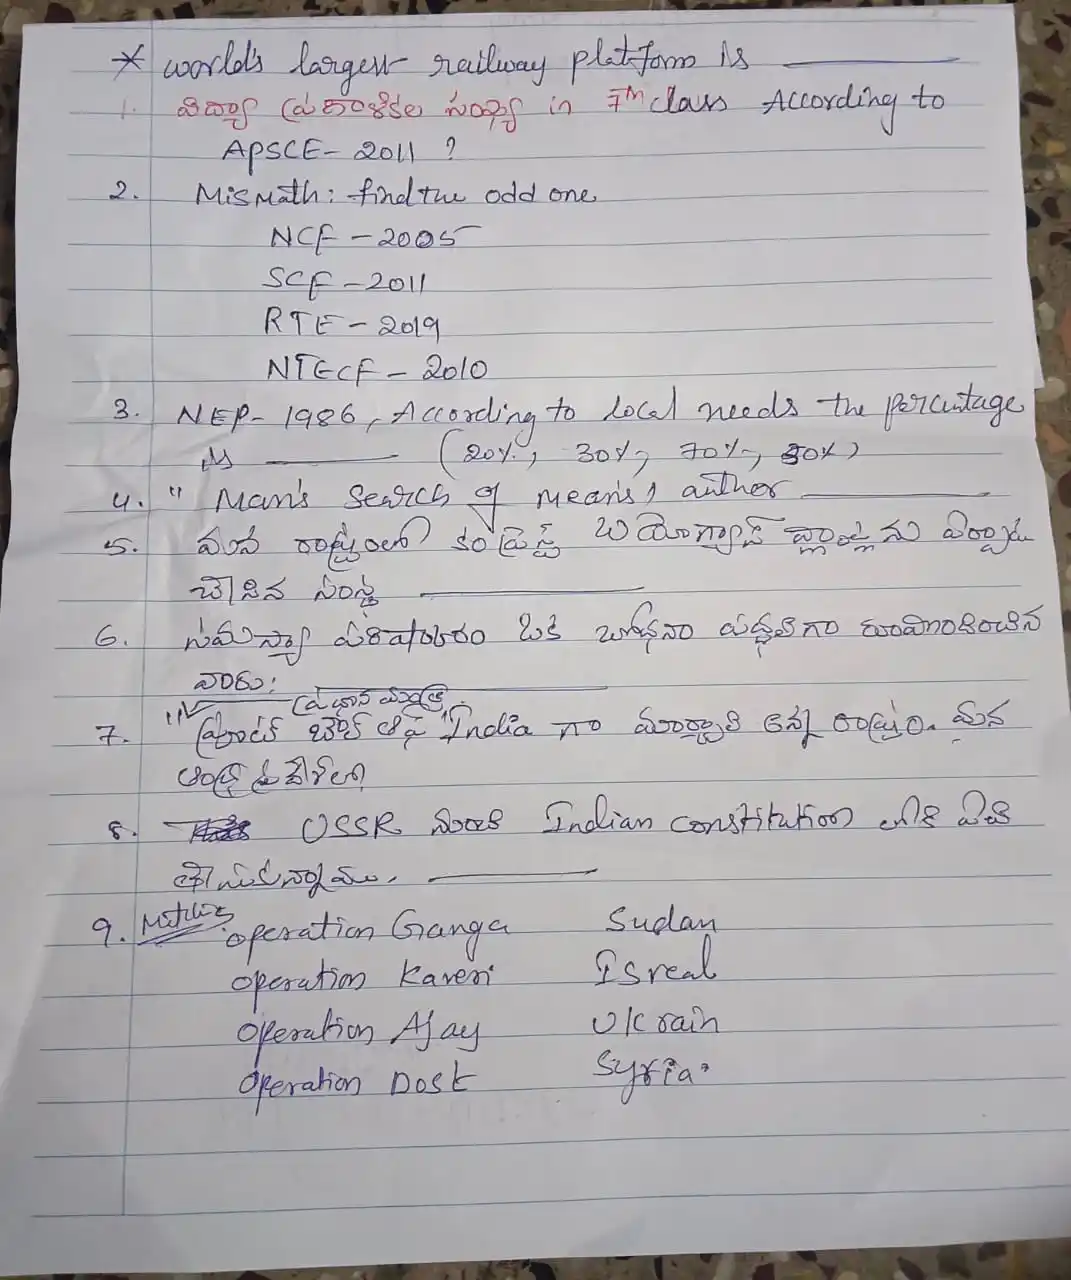 * world's largest railway platform is ———
1. విద్యా ప్రమాణికల సంఖ్య in 7th class According to
APSCE - 2011 ?
2. MisMath: find the odd one
NCF - 2005
SCF - 2011
RTE - 2019
NTECF - 2010
3. NEP - 1986, According to local needs the percentage
is ——— (20%, 30%, 70%, 80%)
4. " Man's Search of Means" auther ———
5. మన రాష్ట్రంలో బయోగ్యాస్ ప్లాంట్ ను ఏర్పాటు
చేసిన సంస్థ ———
6. సమస్యా పరిష్కారం ఒక బోధనా పద్ధతిగా రూపొందించిన
వారు: ———
ప్రధాన
7. " India గా మార్చాలి అన్న రాష్ట్రం. మన
ఆంధ్రప్రదేశ్ లో
8. USSR నుండి Indian constitution లోకి ఏవి
తీసుకున్నాము. ———
9. Matching operation Ganga Sudan
operation Kaveri Isreal
operation Ajay Ukrain
operation Dost Syria.